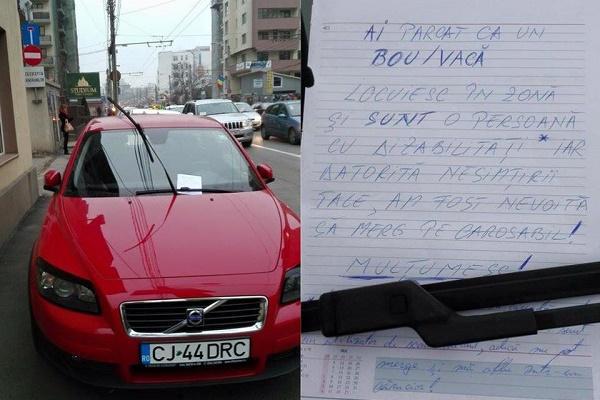 STUDIUM
RO CJ 44 DRC
AI PARCAT CA UN
BOU/VACĂ
LOCUIESC ÎN ZONĂ
ȘI SUNT O PERSOANĂ
CU DIZABILITĂȚI * IAR
DATORITĂ NESIMȚIRII
TALE, AM FOST NEVOITĂ
SĂ MERG PE CAROSABIL!
MULȚUMESC!
sunt
merge și mă aflu într-un
cărucior!